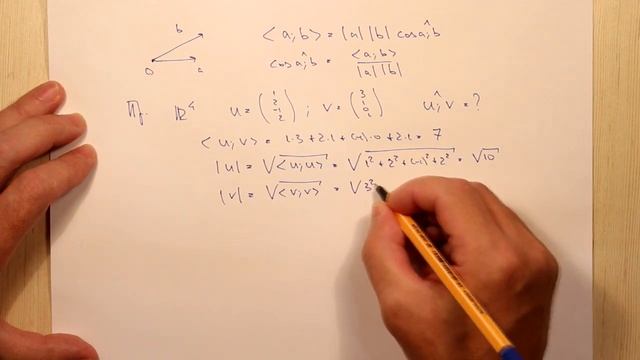 b
<a;b> = |a| |b| cos a^;b
O a
cos a^;b = <a;b> / |a| |b|
Пр. ℝ⁴ u = (1 2 -1 2) ; v = (3 1 0 1) u^;v = ?
<u;v> = 1·3 + 2·1 + (-1)·0 + 2·1 = 7
|u| = √<u;u> = √1² + 2² + (-1)² + 2² = √10
|v| = √<v;v> = √3²